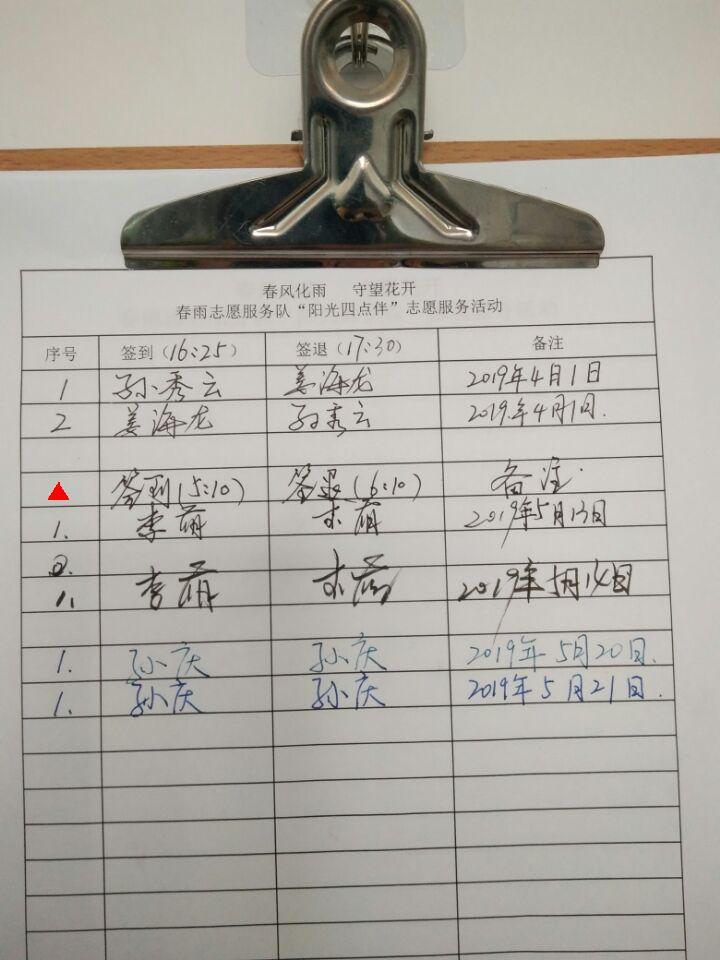 春风化雨 守望花开
春雨志愿服务队“阳光四点伴”志愿服务活动
序号 签到(16:25) 签退(17:30) 备注
1 孙秀云 姜海龙 2019年4月1日
2 姜海龙 孙秀云 2019.年4月1日.
签到(5:10) 签退(6:10) 备注.
1. 李萌 李萌 2019年5月13日
2.
1. 李萌 李萌 2019年5月14日
1. 孙庆 孙庆 2019年5月20日.
1. 孙庆 孙庆 2019年5月21日.